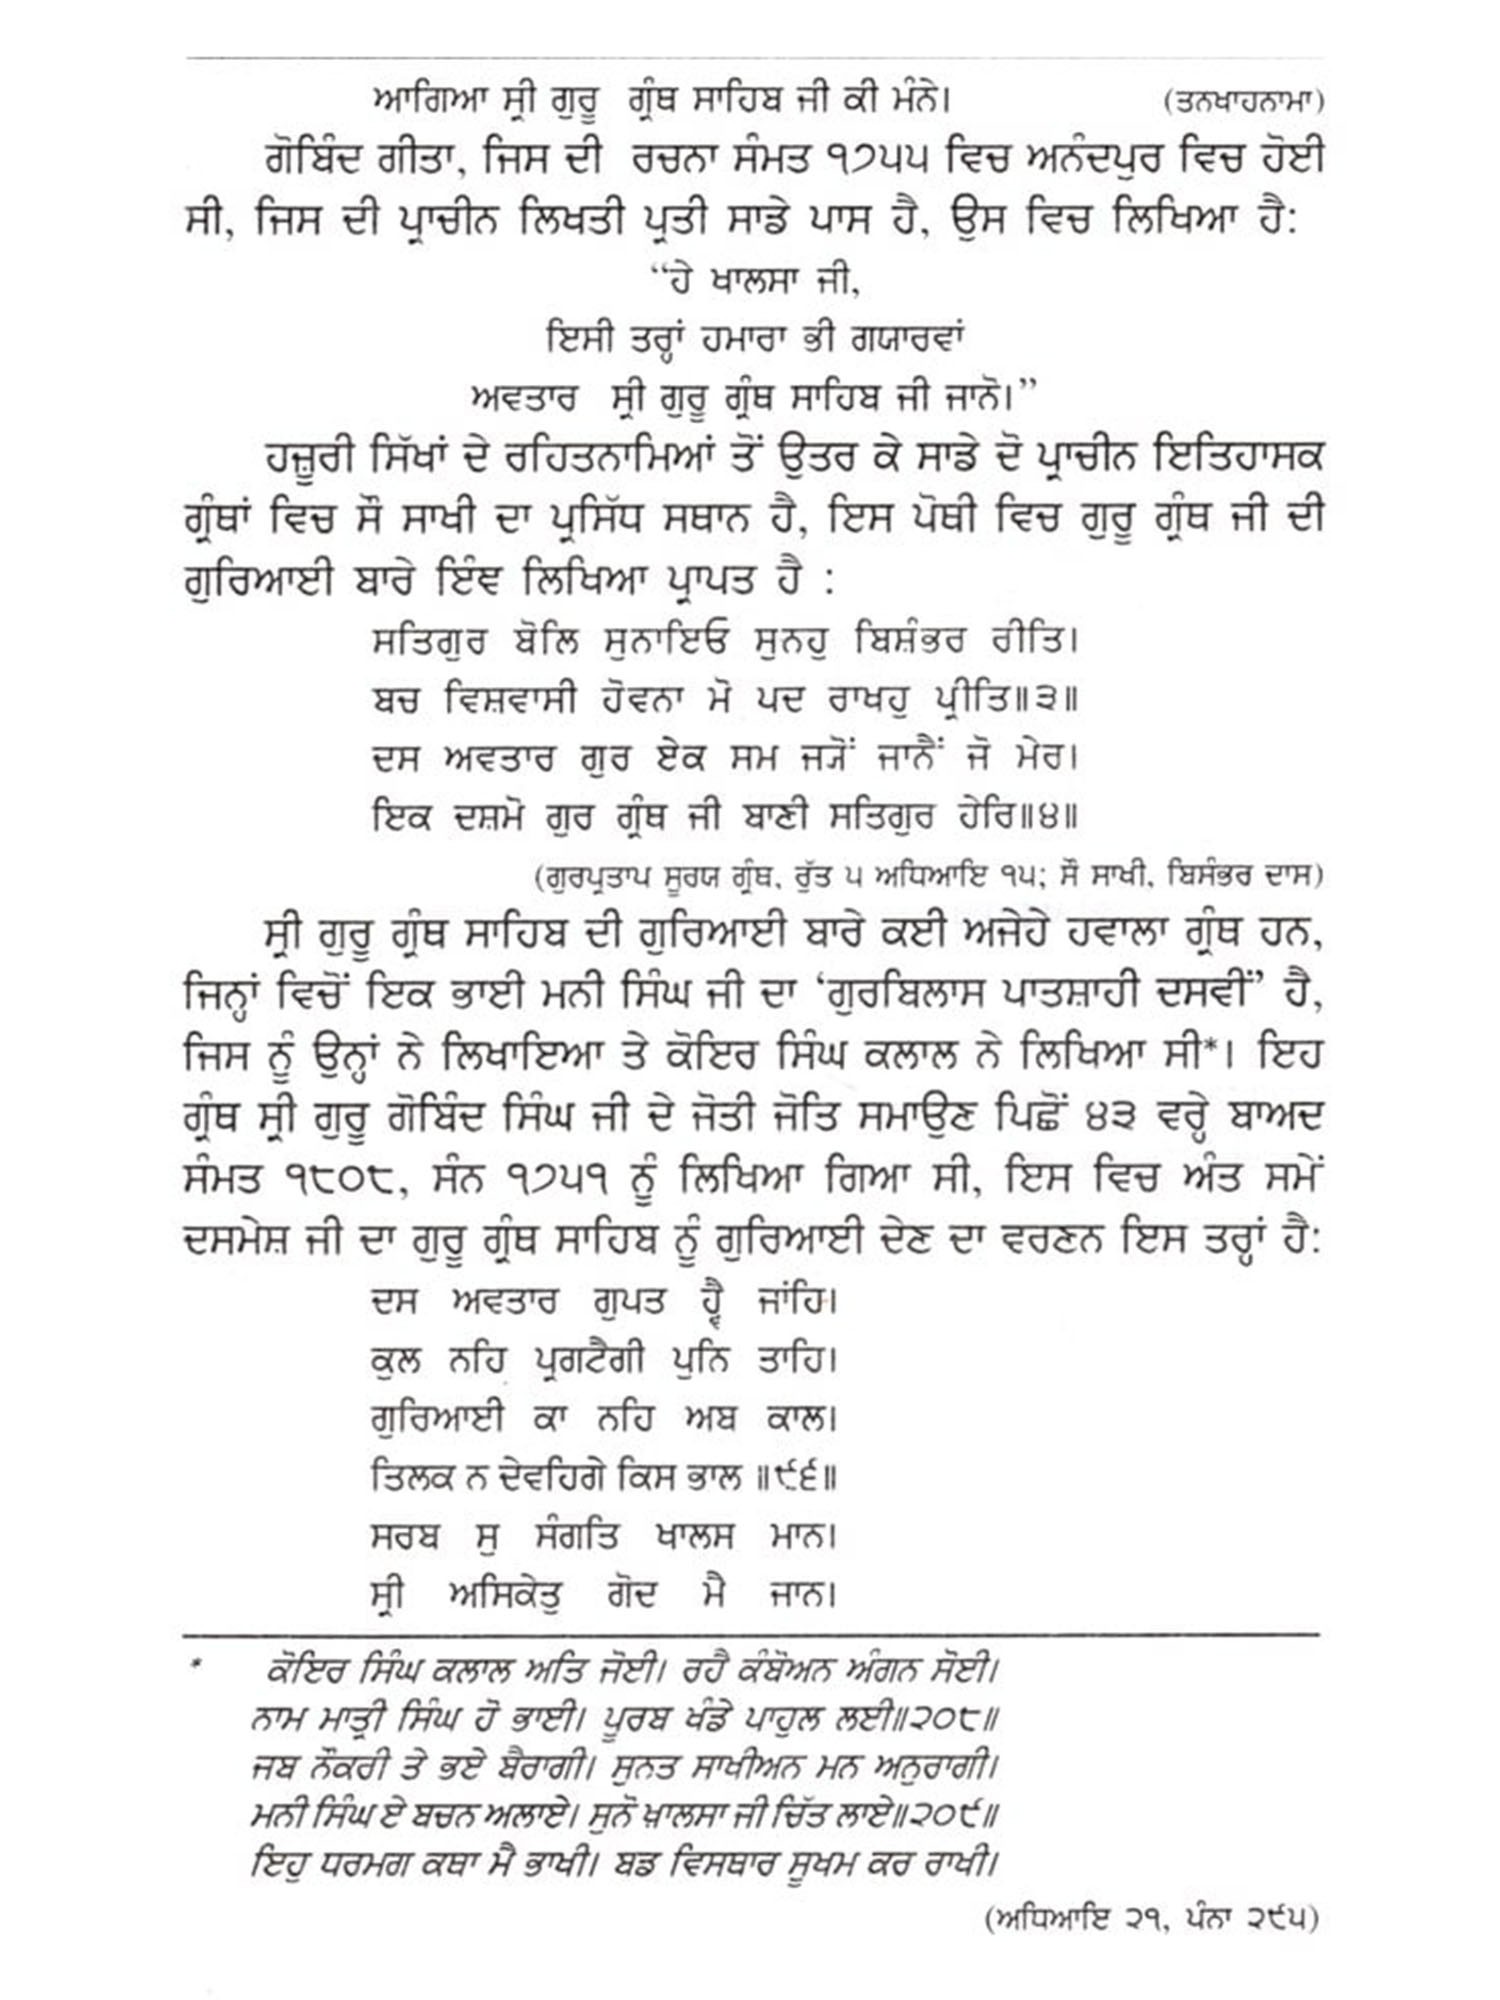 ਆਗਿਆ ਸ੍ਰੀ ਗੁਰੂ ਗ੍ਰੰਥ ਸਾਹਿਬ ਜੀ ਕੀ ਮੰਨੇ। (ਤਨਖਾਹਨਾਮਾ)
ਗੋਬਿੰਦ ਗੀਤਾ, ਜਿਸ ਦੀ ਰਚਨਾ ਸੰਮਤ ੧੭੫੫ ਵਿਚ ਅਨੰਦਪੁਰ ਵਿਚ ਹੋਈ
ਸੀ, ਜਿਸ ਦੀ ਪ੍ਰਾਚੀਨ ਲਿਖਤੀ ਪ੍ਰਤੀ ਸਾਡੇ ਪਾਸ ਹੈ, ਉਸ ਵਿਚ ਲਿਖਿਆ ਹੈ:
“ਹੇ ਖਾਲਸਾ ਜੀ,
ਇਸੀ ਤਰ੍ਹਾਂ ਹਮਾਰਾ ਭੀ ਗਯਾਰਵਾਂ
ਅਵਤਾਰ ਸ੍ਰੀ ਗੁਰੂ ਗ੍ਰੰਥ ਸਾਹਿਬ ਜੀ ਜਾਨੋ।”
ਹਜ਼ੂਰੀ ਸਿੱਖਾਂ ਦੇ ਰਹਿਤਨਾਮਿਆਂ ਤੋਂ ਉਤਰ ਕੇ ਸਾਡੇ ਦੋ ਪ੍ਰਾਚੀਨ ਇਤਿਹਾਸਕ
ਗ੍ਰੰਥਾਂ ਵਿਚ ਸੌ ਸਾਖੀ ਦਾ ਪ੍ਰਸਿੱਧ ਸਥਾਨ ਹੈ, ਇਸ ਪੋਥੀ ਵਿਚ ਗੁਰੂ ਗ੍ਰੰਥ ਜੀ ਦੀ
ਗੁਰਿਆਈ ਬਾਰੇ ਇੰਞ ਲਿਖਿਆ ਪ੍ਰਾਪਤ ਹੈ :
ਸਤਿਗੁਰ ਬੋਲਿ ਸੁਨਾਇਓ ਸੁਨਹੁ ਬਿਸ਼ੰਭਰ ਰੀਤਿ।
ਬਚ ਵਿਸ਼ਵਾਸੀ ਹੋਵਨਾ ਮੋ ਪਦ ਰਾਖਹੁ ਪ੍ਰੀਤਿ॥੩॥
ਦਸ ਅਵਤਾਰ ਗੁਰ ਏਕ ਸਮ ਜ੍ਯੋਂ ਜਾਨੈਂ ਜੋ ਮੇਰ।
ਇਕ ਦਸ਼ਮੋ ਗੁਰ ਗ੍ਰੰਥ ਜੀ ਬਾਣੀ ਸਤਿਗੁਰ ਹੇਰਿ॥੪॥
(ਗੁਰਪ੍ਰਤਾਪ ਸੂਰਯ ਗ੍ਰੰਥ, ਰੁੱਤ ੫ ਅਧਿਆਇ ੧੫; ਸੌ ਸਾਖੀ, ਬਿਸੰਭਰ ਦਾਸ)
ਸ੍ਰੀ ਗੁਰੂ ਗ੍ਰੰਥ ਸਾਹਿਬ ਦੀ ਗੁਰਿਆਈ ਬਾਰੇ ਕਈ ਅਜੇਹੇ ਹਵਾਲਾ ਗ੍ਰੰਥ ਹਨ,
ਜਿਨ੍ਹਾਂ ਵਿਚੋਂ ਇਕ ਭਾਈ ਮਨੀ ਸਿੰਘ ਜੀ ਦਾ ‘ਗੁਰਬਿਲਾਸ ਪਾਤਸ਼ਾਹੀ ਦਸਵੀਂ” ਹੈ,
ਜਿਸ ਨੂੰ ਉਨ੍ਹਾਂ ਨੇ ਲਿਖਾਇਆ ਤੇ ਕੋਇਰ ਸਿੰਘ ਕਲਾਲ ਨੇ ਲਿਖਿਆ ਸੀ*। ਇਹ
ਗ੍ਰੰਥ ਸ੍ਰੀ ਗੁਰੂ ਗੋਬਿੰਦ ਸਿੰਘ ਜੀ ਦੇ ਜੋਤੀ ਜੋਤਿ ਸਮਾਉਣ ਪਿਛੋਂ ੪੩ ਵਰ੍ਹੇ ਬਾਅਦ
ਸੰਮਤ ੧੮੦੮, ਸੰਨ ੧੭੫੧ ਨੂੰ ਲਿਖਿਆ ਗਿਆ ਸੀ, ਇਸ ਵਿਚ ਅੰਤ ਸਮੇਂ
ਦਸਮੇਸ਼ ਜੀ ਦਾ ਗੁਰੂ ਗ੍ਰੰਥ ਸਾਹਿਬ ਨੂੰ ਗੁਰਿਆਈ ਦੇਣ ਦਾ ਵਰਣਨ ਇਸ ਤਰ੍ਹਾਂ ਹੈ:
ਦਸ ਅਵਤਾਰ ਗੁਪਤ ਹ੍ਵੈ ਜਾਂਹਿ।
ਕੁਲ ਨਹਿ ਪ੍ਰਗਟੈਗੀ ਪੁਨਿ ਤਾਹਿ।
ਗੁਰਿਆਈ ਕਾ ਨਹਿ ਅਬ ਕਾਲ।
ਤਿਲਕ ਨ ਦੇਵਹਿਗੇ ਕਿਸ ਭਾਲ ॥੯੬॥
ਸਰਬ ਸੁ ਸੰਗਤਿ ਖਾਲਸ ਮਾਨ।
ਸ੍ਰੀ ਅਸਿਕੇਤੁ ਗੋਦ ਮੈ ਜਾਨ।
* ਕੋਇਰ ਸਿੰਘ ਕਲਾਲ ਅਤਿ ਜੋਈ। ਰਹੈ ਕੰਬੋਅਨ ਅੰਗਨ ਸੋਈ।
ਨਾਮ ਮਾਤ੍ਰੀ ਸਿੰਘ ਹੋ ਭਾਈ। ਪੂਰਬ ਖੰਡੇ ਪਾਹੁਲ ਲਈ॥੨੦੮॥
ਜਬ ਨੌਕਰੀ ਤੇ ਭਏ ਬੈਰਾਗੀ। ਸੁਨਤ ਸਾਖੀਅਨ ਮਨ ਅਨੁਰਾਗੀ।
ਮਨੀ ਸਿੰਘ ਏ ਬਚਨ ਅਲਾਏ। ਸੁਨੋ ਖ਼ਾਲਸਾ ਜੀ ਚਿੱਤ ਲਾਏ॥੨੦੯॥
ਇਹੁ ਧਰਮਗ ਕਥਾ ਮੈ ਭਾਖੀ। ਬਡ ਵਿਸਥਾਰ ਸੂਖਮ ਕਰ ਰਾਖੀ।
(ਅਧਿਆਇ ੨੧, ਪੰਨਾ ੨੯੫)